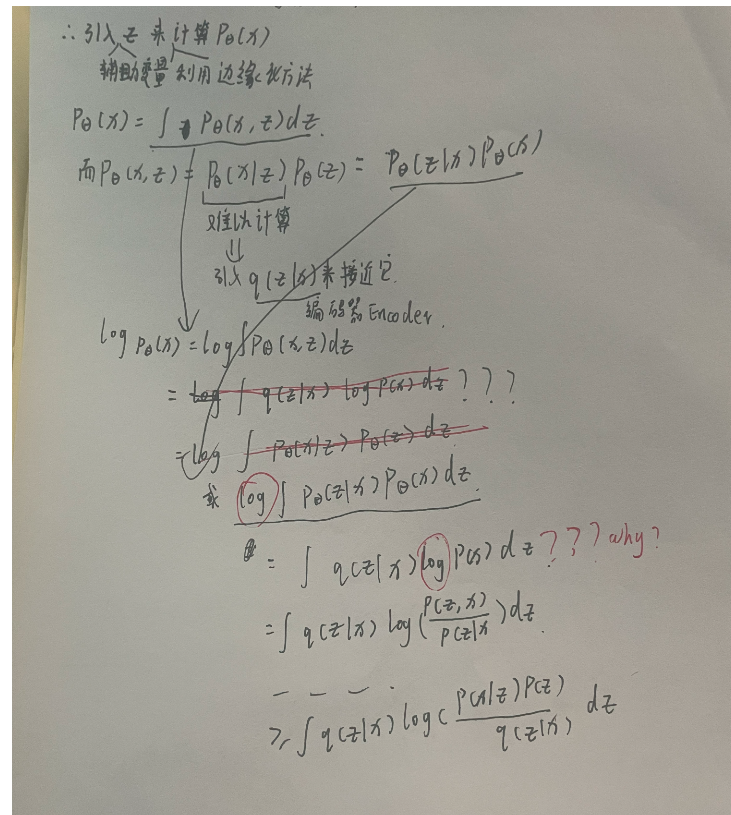 ∴ 引入 z 来计算 Pθ(x)
辅助变量 利用边缘化方法
Pθ(x) = ∫ Pθ(x, z)dz.
而 Pθ(x, z) = Pθ(x|z) Pθ(z) = Pθ(z|x) Pθ(x)
难以计算
⇓
引入 q(z|x) 来接近它.
编码器 Encoder.
log Pθ(x) = log ∫ Pθ(x, z)dz
= log ∫ q(z|x) log P(x) dz ? ? ?
= log ∫ Pθ(x|z) Pθ(z) dz.
或 log ∫ Pθ(z|x) Pθ(x) dz.
= ∫ q(z|x) log P(x) dz ? ? ? why?
= ∫ q(z|x) log (P(z, x) / P(z|x) dz.
— — — .
≥ ∫ q(z|x) log ( P(x|z) P(z) / q(z|x) dz